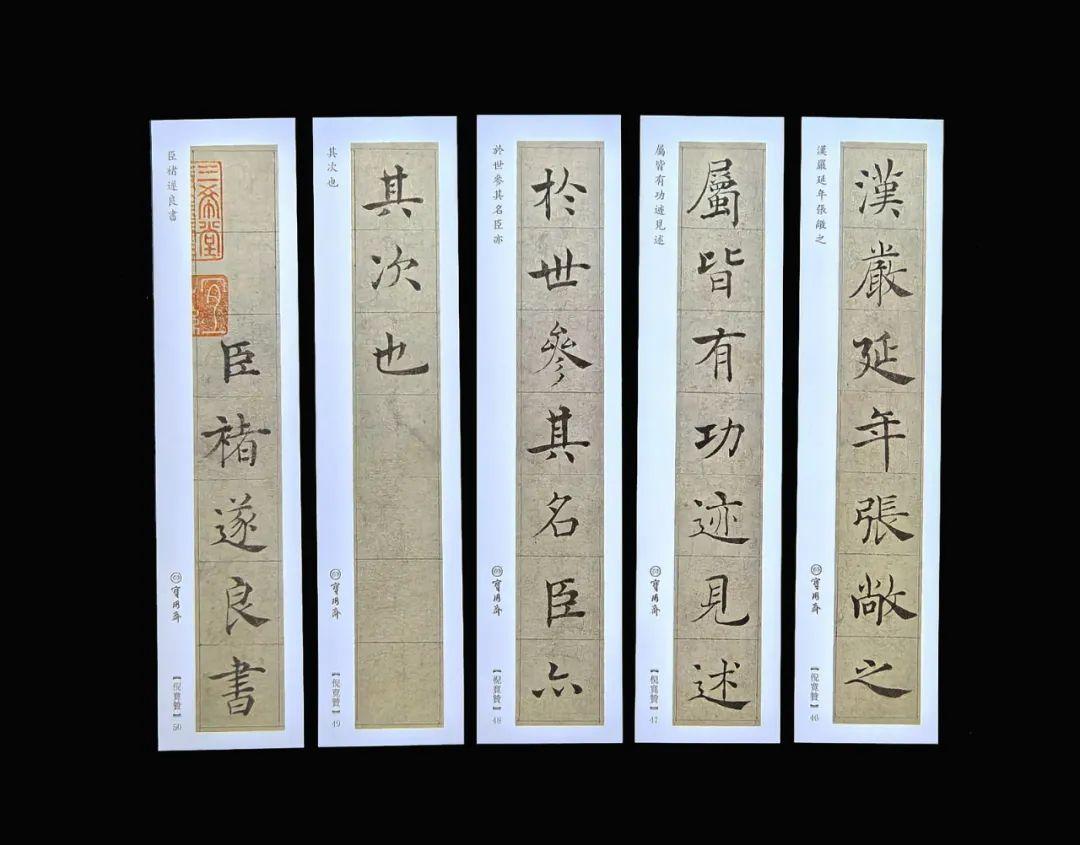 漢嚴延年張敞之
漢嚴延年張敞之
寶彤齋
【倪寬贊】46
屬皆有功迹見述
屬皆有功迹見述
【倪寬贊】47
於世參其名臣亦
於世參其名臣亦
【倪寬贊】48
其次也
其次也
【倪寬贊】49
三希堂
臣褚遂良書
臣褚遂良書
【倪寬贊】50